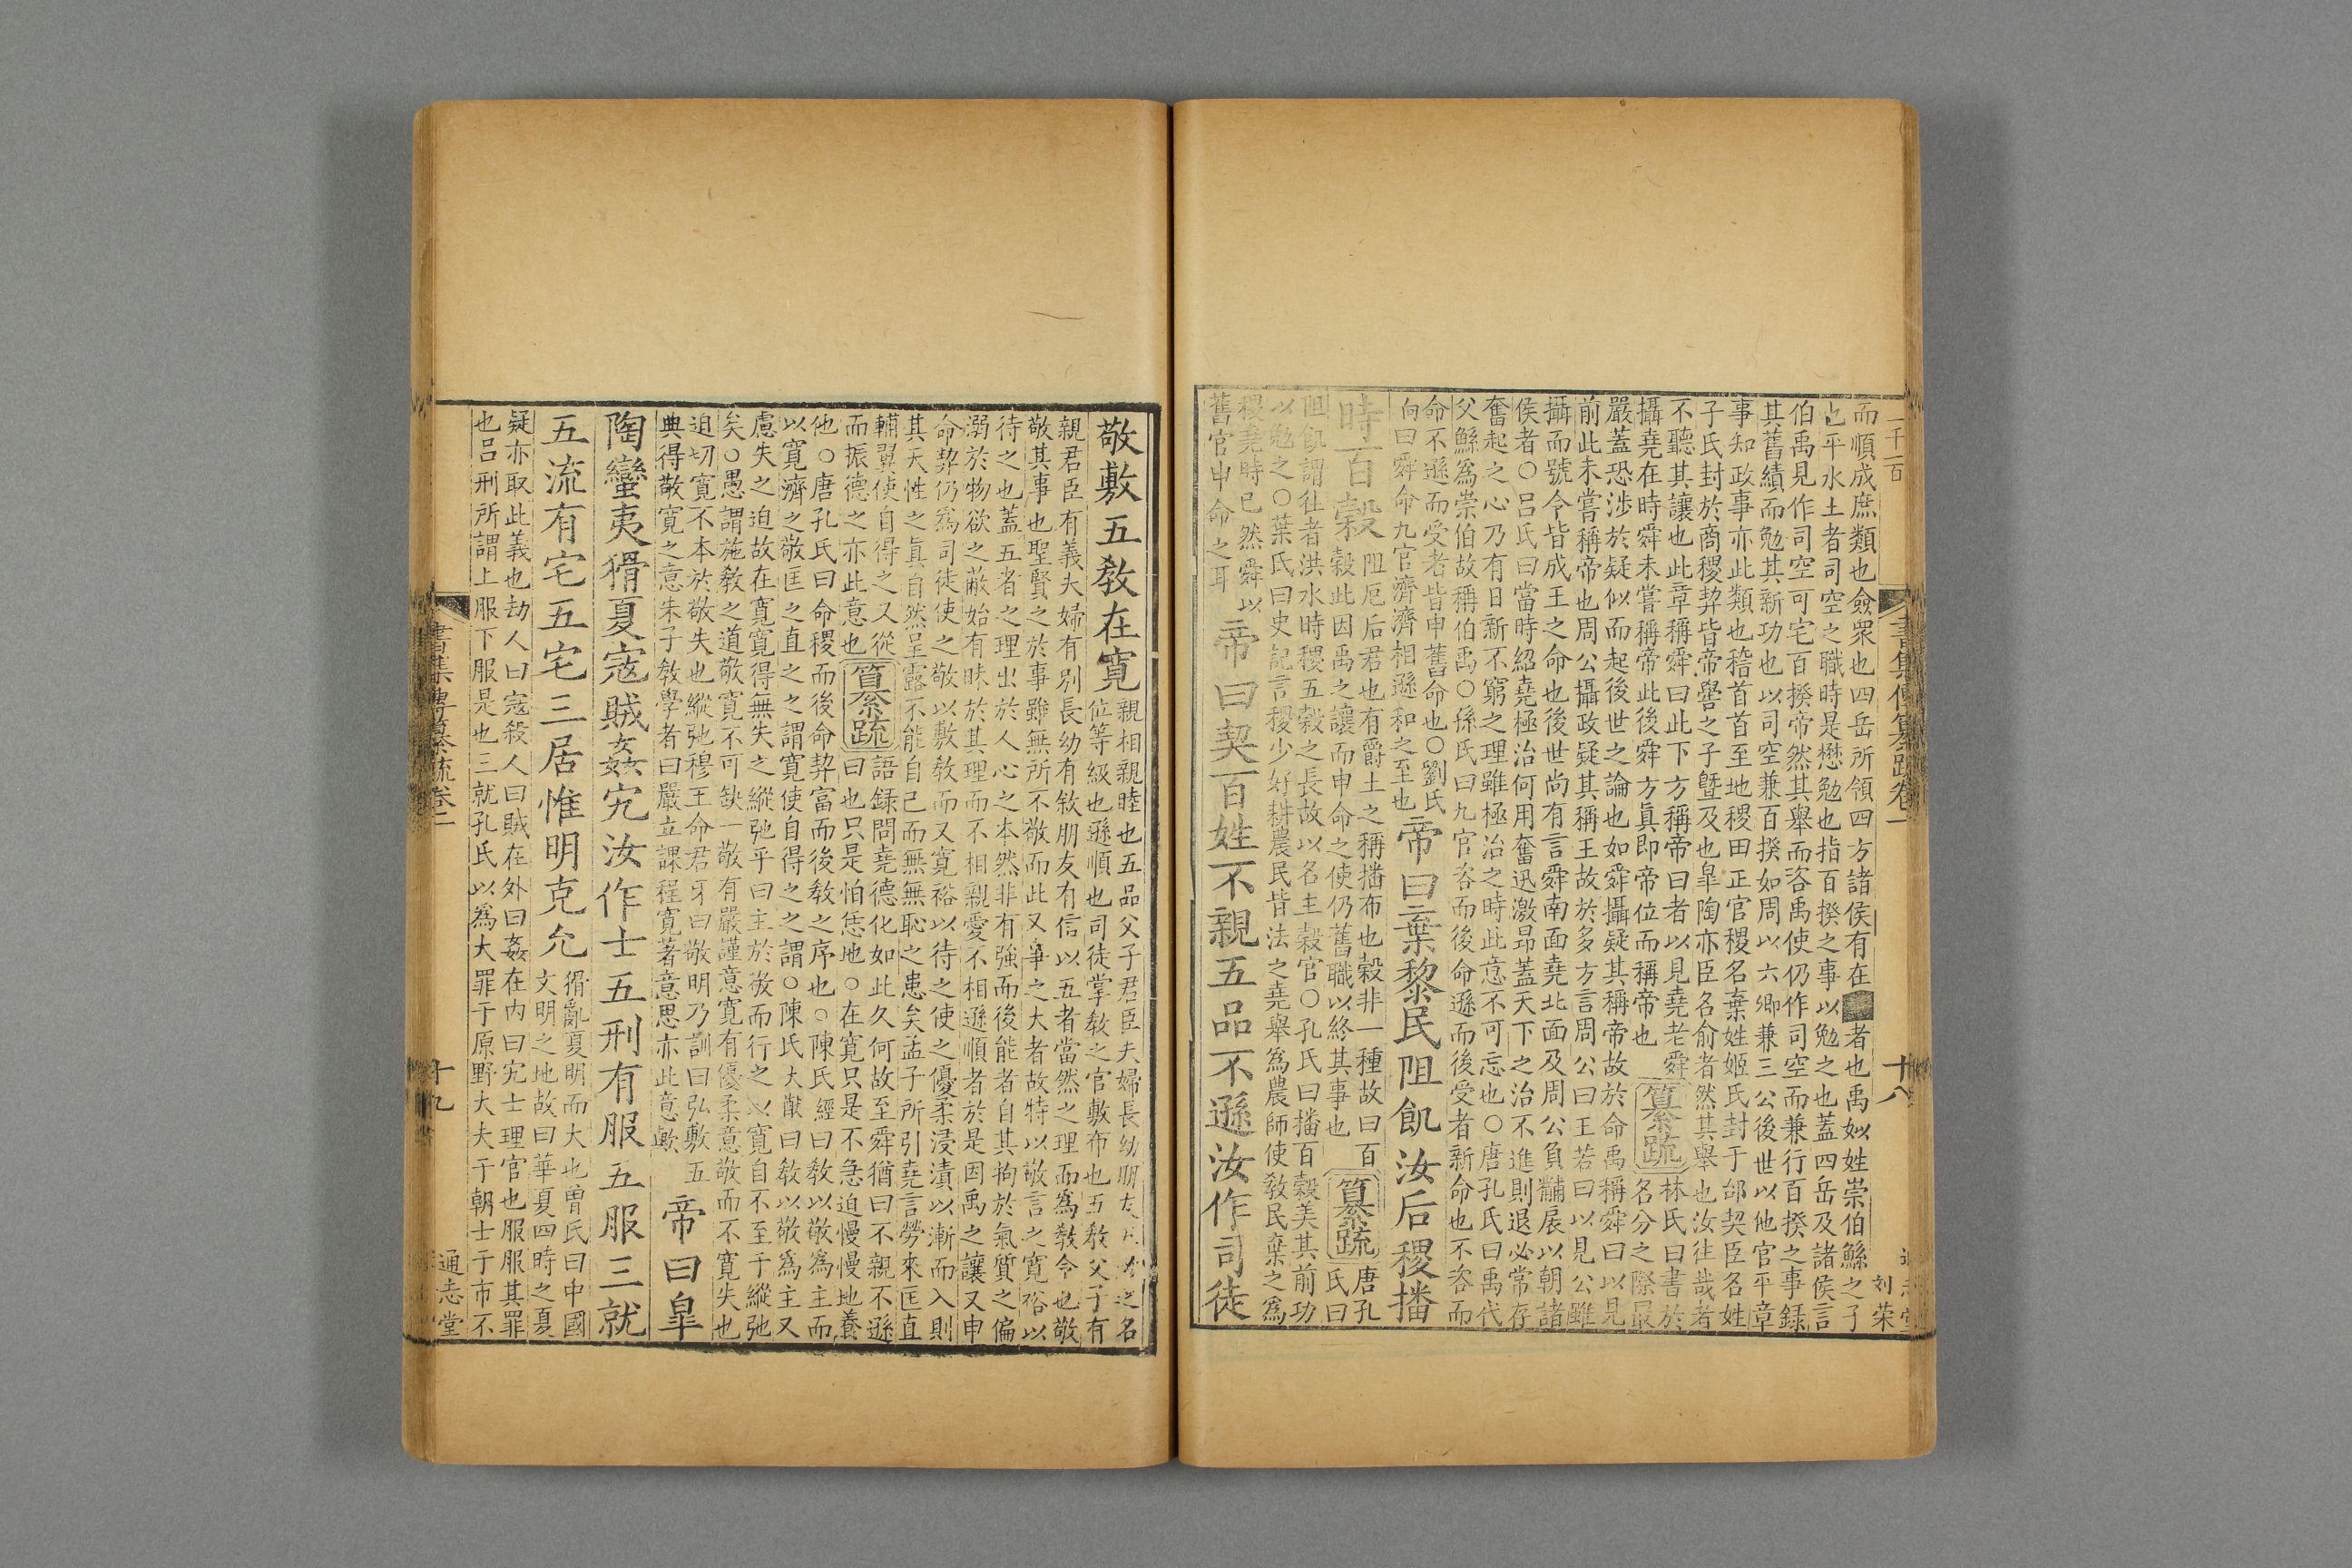 二千一百
書集傳纂疏卷一 十八 通志堂
刘荣
而順成庶類也僉眾也四岳所領四方諸侯有在者也禹姒姓崇伯鯀之子
也平水土者司空之職時是懋勉也指百揆之事以勉之也蓋四岳及諸侯言
伯禹見作司空可宅百揆帝然其舉而咨禹使仍作司空而兼行百揆之事錄
其舊績而勉其新功也以司空兼百揆如周以六卿兼三公後世以他官平章
事知政事亦此類也稽首首至地稷田正官稷名棄姓姬氏封于邰契臣名姓
子氏封於商稷契皆帝嚳之子曁及也皐陶亦臣名俞者然其舉也汝往哉者
不聽其讓也此章稱舜曰此下方稱帝曰者以見堯老舜
攝堯在時舜未嘗稱帝此後舜方真即帝位而稱帝也
纂疏
林氏曰書於
名分之際最
嚴蓋恐涉於疑似而起後世之論也如舜攝疑其稱帝故於命禹稱舜曰以見
前此未嘗稱帝也周公攝政疑其稱王故於多方言周公曰王若曰以見公雖
攝而號令皆成王之命也後世尚有言舜南面堯北面及周公負黼扆以朝諸
侯者○呂氏曰當時紹堯極治何用奮迅激昂蓋天下之治不進則退必常存
奮起之心乃有日新不窮之理雖極治之時此意不可忘也○唐孔氏曰禹代
父鯀為崇伯故稱伯禹○孫氏曰九官咨而後命遜而後受者新命也不咨而
命不遜而受者皆申舊命也○劉氏
向曰舜命九官濟濟相遜和之至也
帝曰棄黎民阻飢汝后稷播
時百穀
阻厄后君也有爵土之稱播布也穀非一種故曰百
穀此因禹之讓而申命之使仍舊職以終其事也
纂疏
唐孔
氏曰
阻飢謂往者洪水時稷五穀之長故以名主穀官○孔氏曰播百穀美其前功
以勉之○葉氏曰史記言稷少好耕農民皆法之堯舉為農師使敎民棄之為
稷堯時已然舜以
舊官申命之耳
帝曰契百姓不親五品不遜汝作司徒
敬敷五敎在寬
親相親睦也五品父子君臣夫婦長幼朋友五者之名
位等級也遜順也司徒掌敎之官敷布也五敎父子有
親君臣有義夫婦有別長幼有敘朋友有信以五者當然之理而為敎令也敬
敬其事也聖賢之於事雖無所不敬而此又事之大者故特以敬言之寬裕以
待之也蓋五者之理出於人心之本然非有強而後能者自其拘於氣質之偏
溺於物欲之蔽始有昧於其理而不相親愛不相遜順者於是因禹之讓又申
命契仍為司徒使之敬以敷敎而又寬裕以待之使之優柔浸漬以漸而入則
其天性之真自然呈露不能自已而無無恥之患矣孟子所引堯言勞來匡直
輔翼使自得之又從
而振德之亦此意也
纂疏
語録問堯德化如此久何故至舜猶曰不親不遜
曰也只是怕恁地○在寬只是不急迫慢慢地養
他○唐孔氏曰命稷而後命契富而後敎之序也○陳氏經曰敎以敬為主而
以寬濟之敬匡之直之之謂寬使自得之之謂○陳氏大猷曰敎以敬為主又
慮失之迫故在寬寬得無失之縱弛乎曰主於敬而行之以寬自不至于縱弛
矣○愚謂施敎之道敬寬不可缺一敬有嚴謹意寬有優柔意敬而不寬失也
迫切寬不本於敬失也縱弛穆王命君牙曰敬明乃訓曰弘敷五
典得敬寬之意朱子敎學者曰嚴立課程寬著意思亦此意歟
帝曰皐
陶蠻夷猾夏寇賊姦宄汝作士五刑有服五服三就
五流有宅五宅三居惟明克允
猾亂夏明而大也曾氏曰中國
文明之地故曰華夏四時之夏
疑亦取此義也劫人曰寇殺人曰賊在外曰姦在内曰宄士理官也服服其罪
也呂刑所謂上服下服是也三就孔氏以為大罪于原野大夫于朝士于市不
書集傳纂疏卷一 十九 通志堂